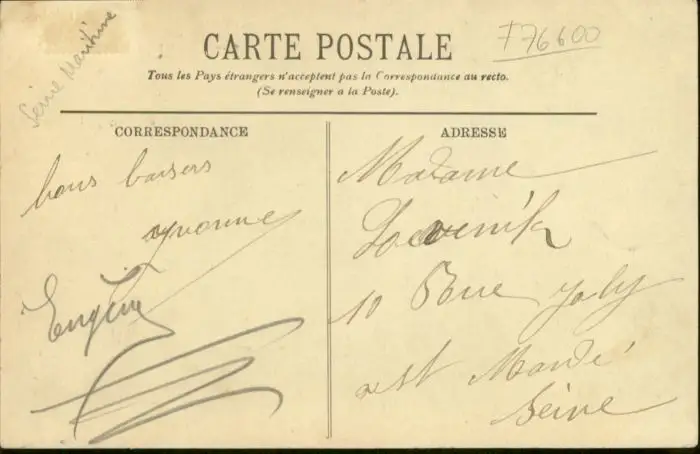 Seine Maritime
F76600
CARTE POSTALE
Tous les Pays étrangers n'acceptent pas la Correspondance au recto.
(Se renseigner a la Poste).
CORRESPONDANCE
bons baisers
yvonne
Eugène
ADRESSE
Madame
10 Rue
st Mandé
Seine